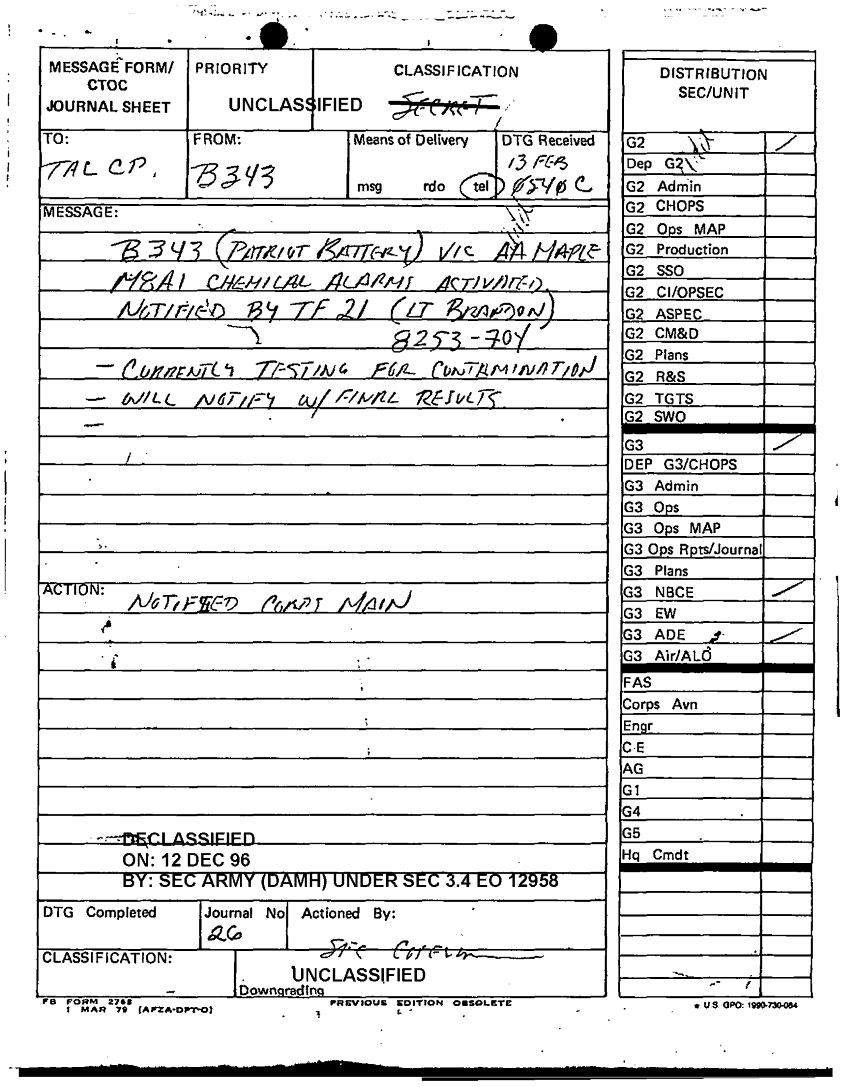 MESSAGE FORM/
CTOC
JOURNAL SHEET
PRIORITY
UNCLASSIFIED
CLASSIFICATION
SECRET
TO:
TAC CP.
FROM:
B343
Means of Delivery
msg rdo tel
DTG Received
13 FEB
0540 C
MESSAGE:
B343 (PATRIOT BATTERY) VIC AA MAPLE
M8A1 CHEMICAL ALARMS ACTIVATED
NOTIFIED BY TF 21 (LT BRANDON)
8253-704
– CURRENTLY TESTING FOR CONTAMINATION
– WILL NOTIFY W/ FINAL RESULTS
–
ACTION:
NOTIFIED CORPS MAIN
DECLASSIFIED
ON: 12 DEC 96
BY: SEC ARMY (DAMH) UNDER SEC 3.4 EO 12958
DTG Completed
Journal No
26
Actioned By:
SFC
CLASSIFICATION:
UNCLASSIFIED
Downgrading
FB FORM 2768
1 MAR 79 (AFZA-DPT-O)
PREVIOUS EDITION OBSOLETE
DISTRIBUTION
SEC/UNIT
G2
Dep G2
G2 Admin
G2 CHOPS
G2 Ops MAP
G2 Production
G2 SSO
G2 CI/OPSEC
G2 ASPEC
G2 CM&D
G2 Plans
G2 R&S
G2 TGTS
G2 SWO
G3
DEP G3/CHOPS
G3 Admin
G3 Ops
G3 Ops MAP
G3 Ops Rpts/Journal
G3 Plans
G3 NBCE
G3 EW
G3 ADE
G3 Air/ALO
FAS
Corps Avn
Engr
C-E
AG
G1
G4
G5
Hq Cmdt
* U.S GPO: 1990-730-084